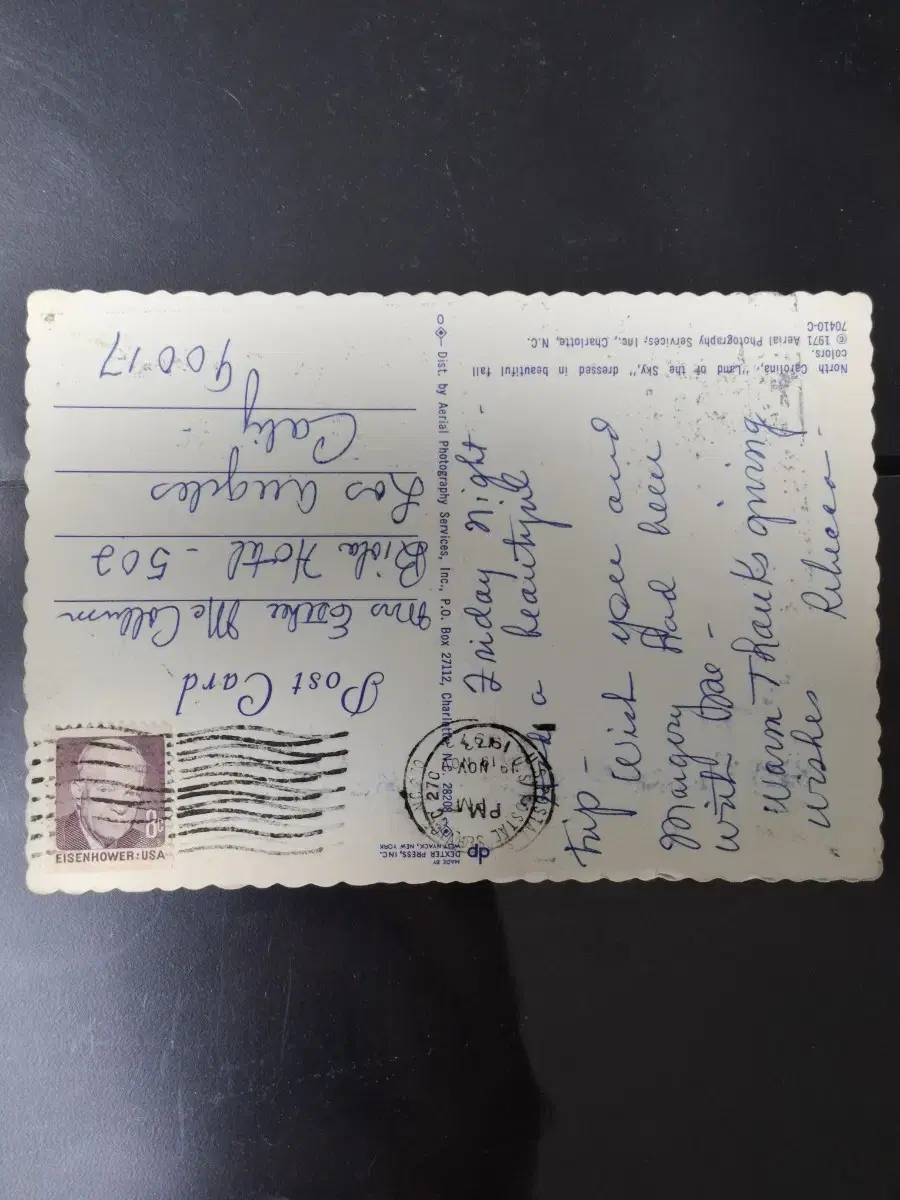 North Carolina, "Land of the Sky," dressed in beautiful fall
colors.
© 1971 Aerial Photography Services, Inc., Charlotte, N.C.
70410-C
Friday night -
a beautiful
trip - Wish you and
Margory Had been
with
Warm Thanksgiving
wishes Rebecca -
Dist. by Aerial Photography Services, Inc., P.O. Box 27112, Charlotte, N.C. 28208
dp
MADE BY
DEXTER PRESS, INC.
WEST NYACK, NEW YORK
Post Card
Mrs Esther McCollum
Biola Hotel - 502
Los Angeles
Calif
90017
EISENHOWER·USA
8c
U.S. POSTAL SERVICE
270
PM
NOV